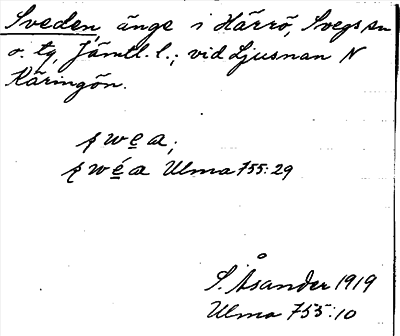 Sveden, änge i Härrö, Svegs sn
o. tg, Jämtl. l.; vid Ljusnan N
Käringön.
swea;
swéa Ulma 755:29
S. Åsander 1919
Ulma 755:10